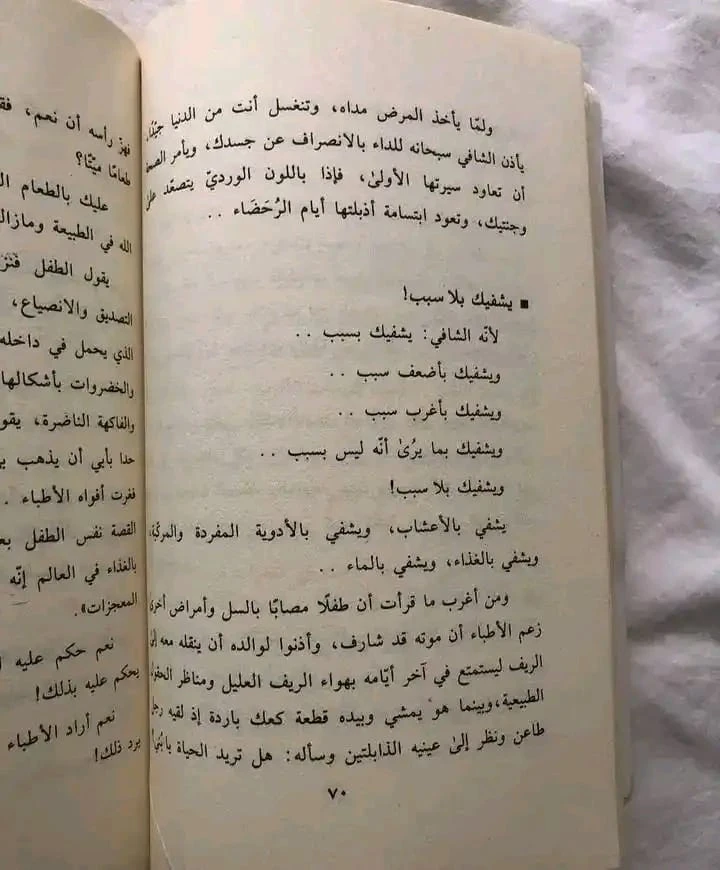 ولمّا يأخذ المرض مداه، وتنغسل أنت من الدنيا جيّدًا،
يأذن الشافي سبحانه للداء بالانصراف عن جسدك، ويأمر
أن تعاود سيرتها الأولىٰ، فإذا باللون الورديّ يتصعّد
وجنتيك، وتعود ابتسامة أذبلتها أيام الرُحَضَاء ..
■ يشفيك بلا سبب!
لأنّه الشافي: يشفيك بسبب ..
ويشفيك بأضعف سبب ..
ويشفيك بأغرب سبب ..
ويشفيك بما يرُىٰ أنّه ليس بسبب ..
ويشفيك بلا سبب!
يشفي بالأعشاب، ويشفي بالأدوية المفردة والمركّبة،
ويشفي بالغذاء، ويشفي بالماء ..
ومن أغرب ما قرأت أن طفلًا مصابًا بالسل وأمراض أخرىٰ
زعم الأطباء أن موته قد شارف، وأذنوا لوالده أن ينقله معه إلىٰ
الريف ليستمتع في آخر أيّامه بهواء الريف العليل ومناظر
الطبيعية، وبينما هو يمشي وبيده قطعة كعك باردة إذ لقيه رجل
طاعن ونظر إلىٰ عينيه الذابلتين وسأله: هل تريد الحياة يا بُنيّ؟
٧٠
فهزّ رأسه أن نعم،
طعامًا ميّتًا؟
عليك بالطعام
الله في الطبيعة ومازال
يقول الطفل
التصديق والانصياع،
الذي يحمل في داخله
والخضروات بأشكالها
والفاكهة الناضرة،
حدا بأبي أن يذهب
ففرت أفواه الأطباء ..
القصة نفس الطفل
بالغذاء في العالم إنّه
المعجزات».
نعم حكم عليه
يحكم عليه بذلك!
نعم أراد الأطباء
يرد ذلك!